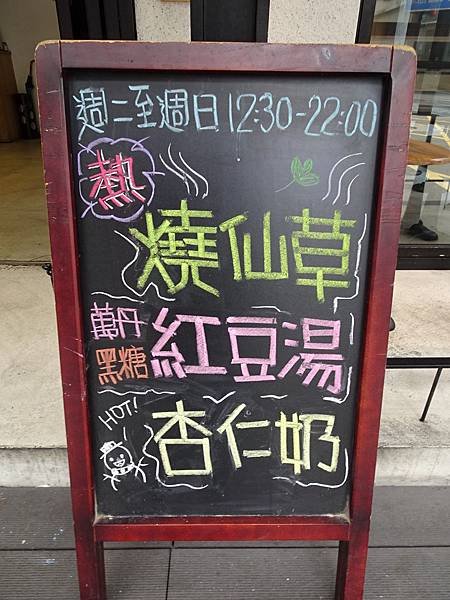 週二至週日 12:30-22:00
熱
燒仙草
萬丹
黑糖
紅豆湯
HOT!
杏仁奶